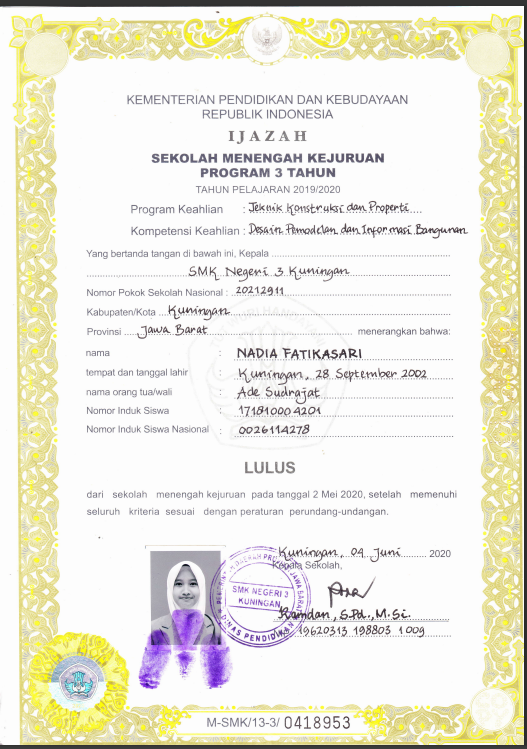 KEMENTERIAN PENDIDIKAN DAN KEBUDAYAAN
REPUBLIK INDONESIA
IJAZAH
SEKOLAH MENENGAH KEJURUAN
PROGRAM 3 TAHUN
TAHUN PELAJARAN 2019/2020
Program Keahlian : Teknik Konstruksi dan Properti
Kompetensi Keahlian : Desain Pemodelan dan Informasi Bangunan
Yang bertanda tangan di bawah ini, Kepala
SMK Negeri 3 Kuningan
Nomor Pokok Sekolah Nasional : 20212911
Kabupaten/Kota Kuningan
Provinsi Jawa Barat menerangkan bahwa:
nama : NADIA FATIKASARI
tempat dan tanggal lahir : Kuningan, 28 September 2002
nama orang tua/wali : Ade Sudrajat
Nomor Induk Siswa : 171810004201
Nomor Induk Siswa Nasional : 0026114278
LULUS
dari sekolah menengah kejuruan pada tanggal 2 Mei 2020, setelah memenuhi
seluruh kriteria sesuai dengan peraturan perundang-undangan.
Kuningan, 04 Juni 2020
Kepala Sekolah,
SMK NEGERI 3
KUNINGAN
DINAS PENDIDIKAN
Ramdan, S.Pd., M.Si.
19620313 198803 1 009
M-SMK/13-3/ 0418953